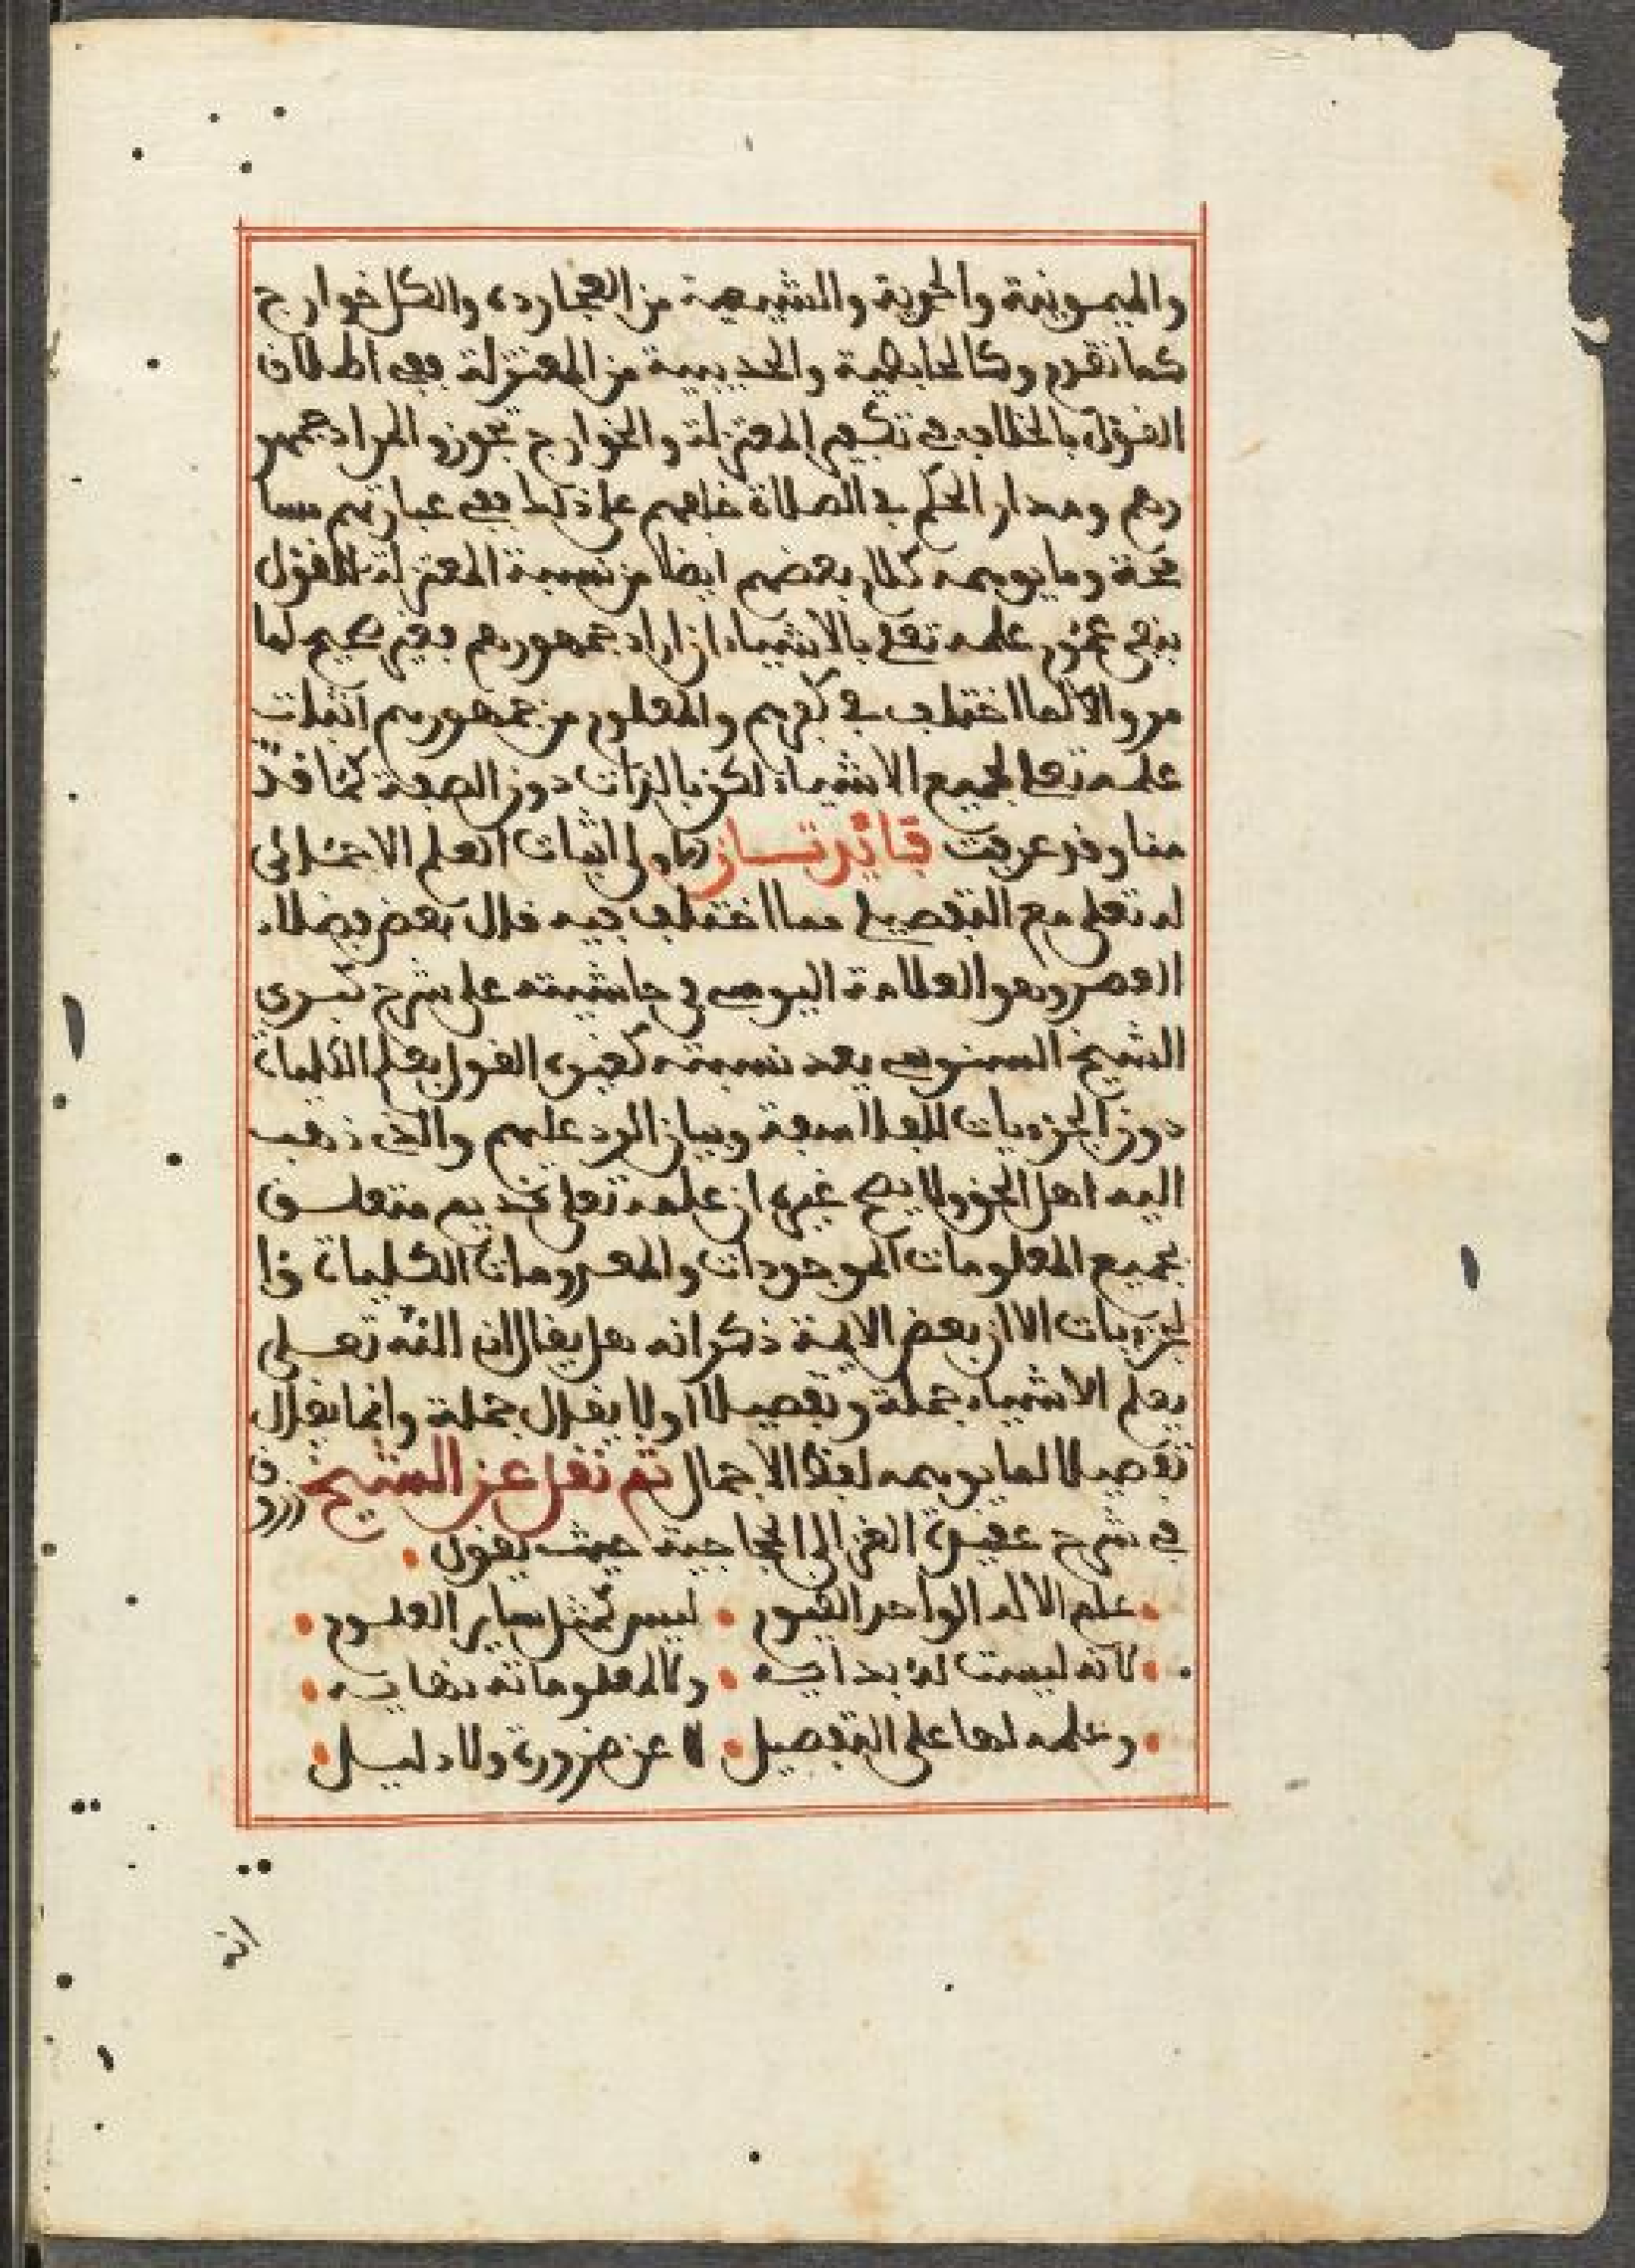 والميمونية والحمزية والشيبية من العجاردة والكل خوارج
كما تقدم وكالحايطية والحديبية من المعتزلة ففي اطلاق
القول بالخلاف في تكفير المعتزلة والخوارج تجوز والمراد جمهو
رهم ومدار الحكم في الصلاة خلفهم على ذلك ففي عبارتهم مسا
محة وما يوهمه كلام بعضهم ايضا من نسبة المعتزلة للقول
بنفي عموم علمه تعلى بالاشياء ان اراد جمهورهم فغير صحيح لما
مر والا لما اختلف في كفرهم والمعلوم من جمهورهم اثبات
علمه تعلى لجميع الاشياء لكن بالذات دون الصفة كما قد
منا وقد عرفت فائدتان الاولى اثبات العلم الاجمالي
له تعلى مع التفصيلي مما اختلف فيه قال بعض فضلاء
العصر وهو العلامة اليوسي في حاشيته على شرح كبرى
الشيخ السنوسي بعد نسبته كغيره القول بعلم الكليات
دون الجزييات للفلاسفة وبيان الرد عليهم والذي ذهب
اليه اهل الحق ولا يصح غيره ان علمه تعلى قديم متعلق
بجميع المعلومات الموجودات والمعدومات الكليات وا
لجزييات الا ان بعض الايمة ذكر انه هل يقال ان الله تعلى
يعلم الاشياء جملة وتفصيلا او لا يقال جملة وانما يقال
تفصيلا لما يوهمه لفظ الاجمال ثم نقل عن الشيخ زروق
في شرح عقيدة الغزالي حيث يقول
علم الاله الواحد القيوم ليس كمثل ساير العلوم
لانه ليست له بدايه ولا لمعلوماته نهايه
وعلمه لها على التفصيل لا عن ضرورة ولا دليل